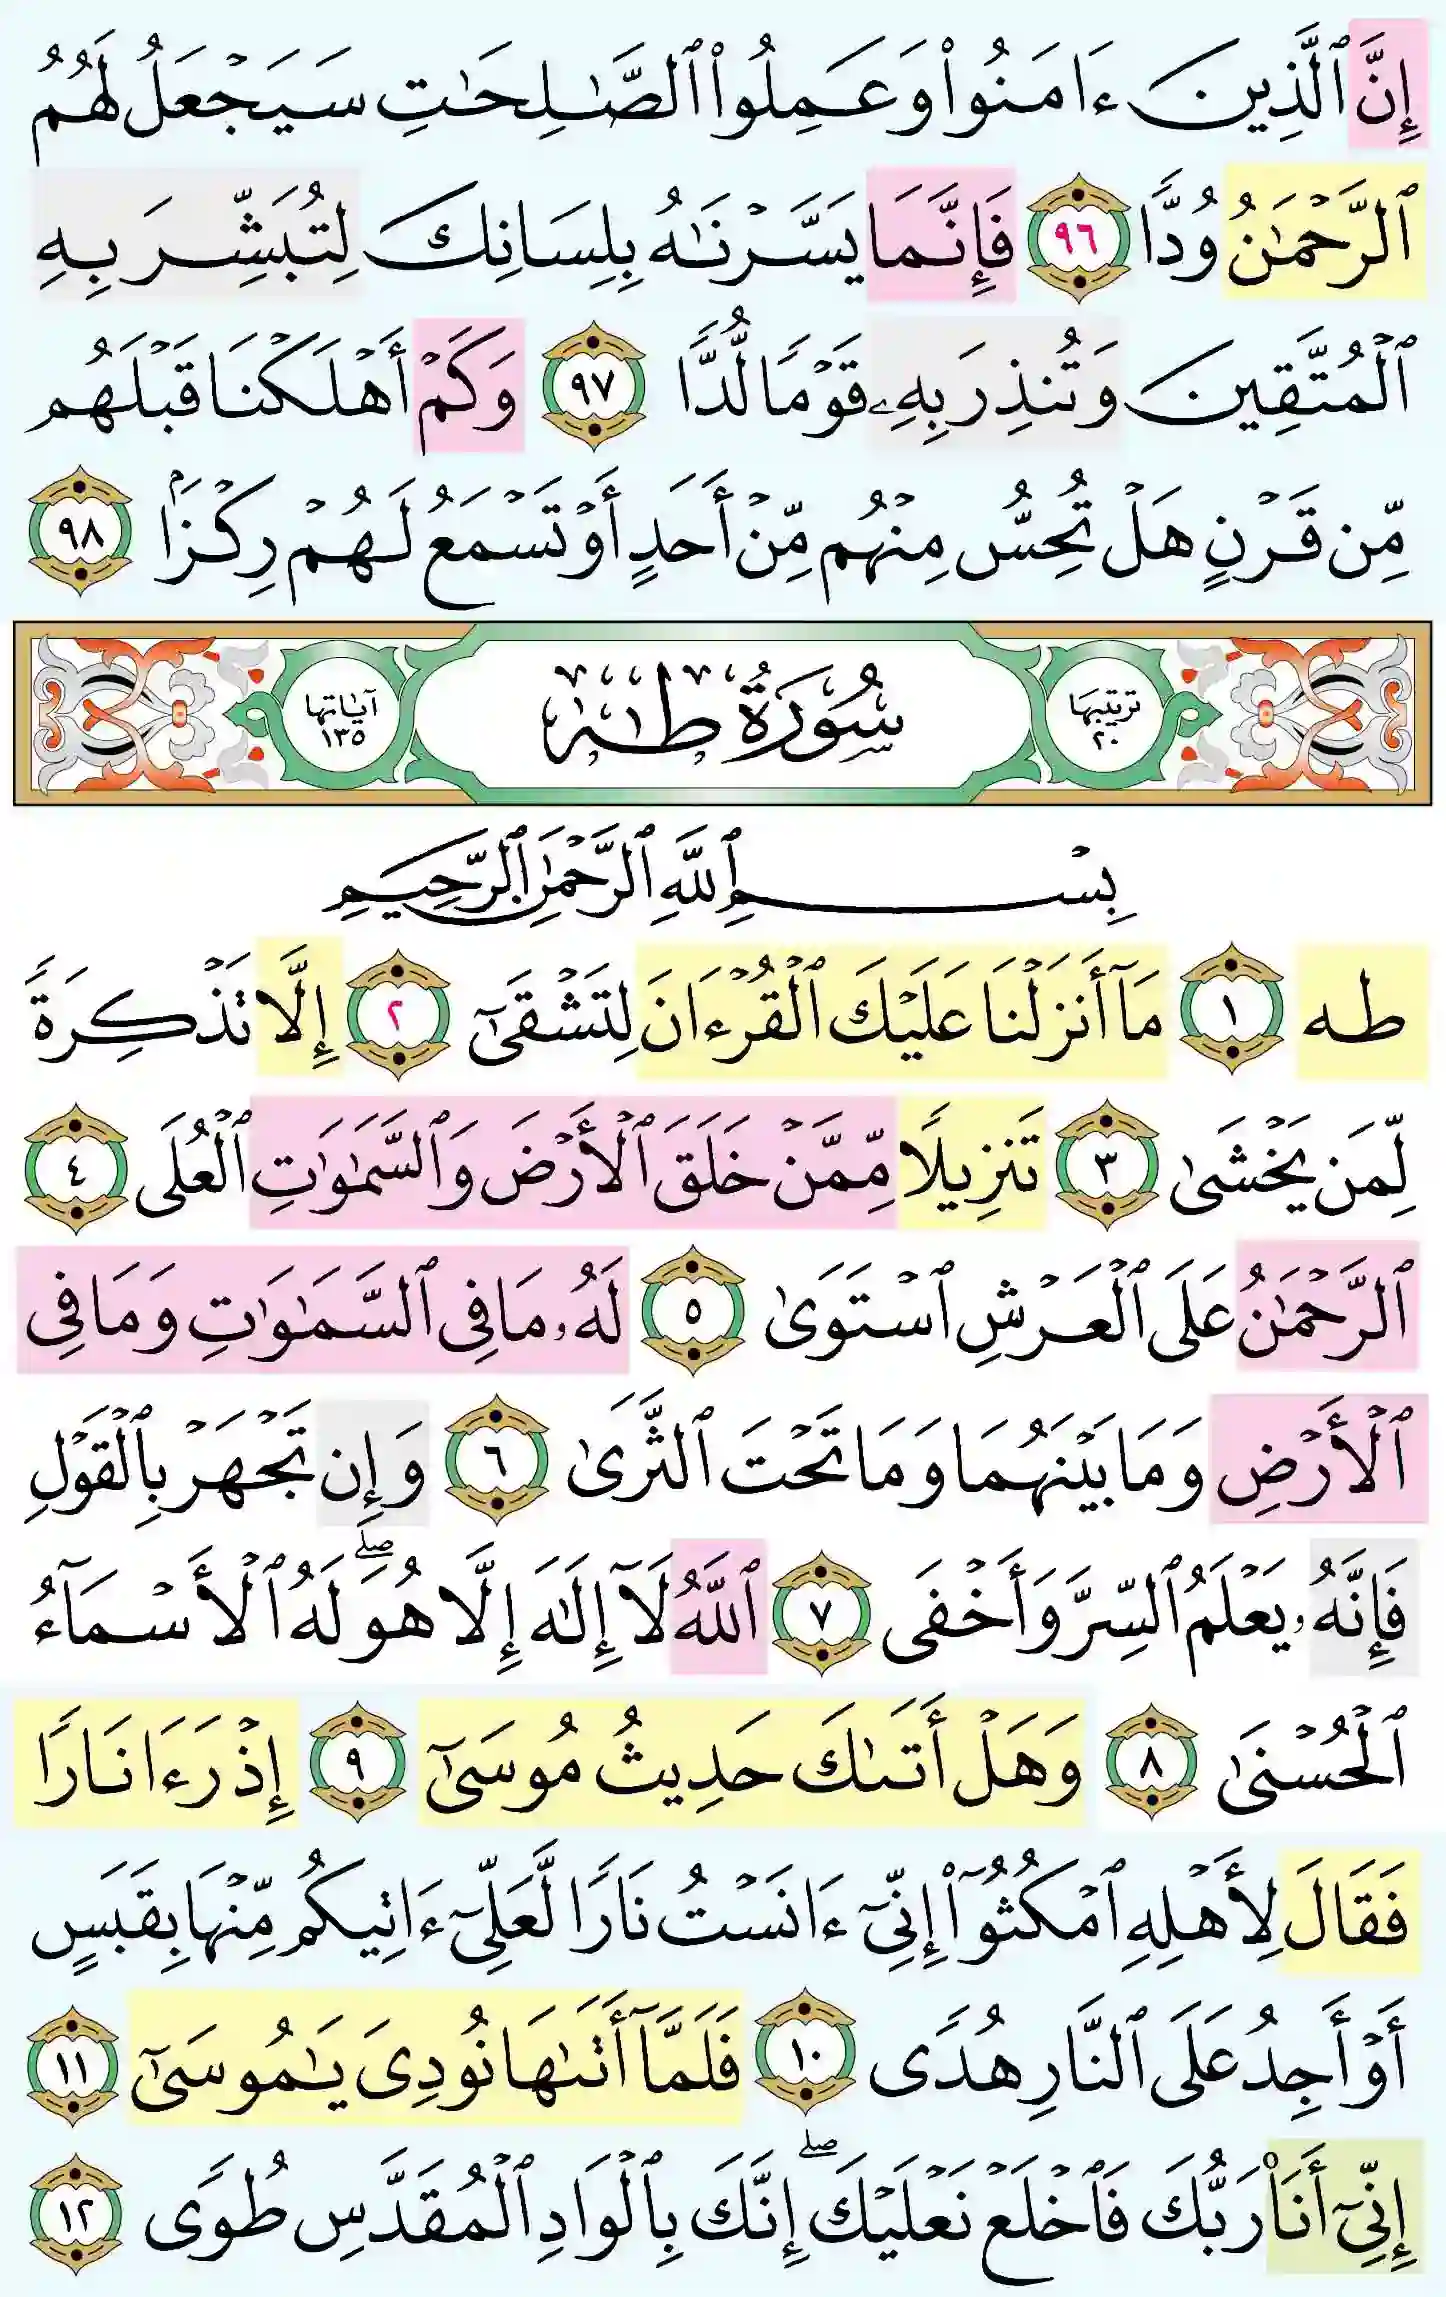 إِنَّ ٱلَّذِينَ ءَامَنُوا۟ وَعَمِلُوا۟ ٱلصَّـٰلِحَـٰتِ سَيَجْعَلُ لَهُمُ
ٱلرَّحْمَـٰنُ وُدًّا ٩٦ فَإِنَّمَا يَسَّرْنَـٰهُ بِلِسَانِكَ لِتُبَشِّرَ بِهِ
ٱلْمُتَّقِينَ وَتُنذِرَ بِهِۦ قَوْمًا لُّدًّا ٩٧ وَكَمْ أَهْلَكْنَا قَبْلَهُم
مِّن قَرْنٍ هَلْ تُحِسُّ مِنْهُم مِّنْ أَحَدٍ أَوْ تَسْمَعُ لَهُمْ رِكْزَۢا ٩٨
ترتيبها ٢٠ سُورَةُ طه آياتها ١٣٥
بِسْمِ ٱللَّهِ ٱلرَّحْمَـٰنِ ٱلرَّحِيمِ
طه ١ مَآ أَنزَلْنَا عَلَيْكَ ٱلْقُرْءَانَ لِتَشْقَىٰٓ ٢ إِلَّا تَذْكِرَةً
لِّمَن يَخْشَىٰ ٣ تَنزِيلًا مِّمَّنْ خَلَقَ ٱلْأَرْضَ وَٱلسَّمَـٰوَٰتِ ٱلْعُلَى ٤
ٱلرَّحْمَـٰنُ عَلَى ٱلْعَرْشِ ٱسْتَوَىٰ ٥ لَهُۥ مَا فِى ٱلسَّمَـٰوَٰتِ وَمَا فِى
ٱلْأَرْضِ وَمَا بَيْنَهُمَا وَمَا تَحْتَ ٱلثَّرَىٰ ٦ وَإِن تَجْهَرْ بِٱلْقَوْلِ
فَإِنَّهُۥ يَعْلَمُ ٱلسِّرَّ وَأَخْفَى ٧ ٱللَّهُ لَآ إِلَـٰهَ إِلَّا هُوَ ۖ لَهُ ٱلْأَسْمَآءُ
ٱلْحُسْنَىٰ ٨ وَهَلْ أَتَىٰكَ حَدِيثُ مُوسَىٰٓ ٩ إِذْ رَءَا نَارًا
فَقَالَ لِأَهْلِهِ ٱمْكُثُوٓا۟ إِنِّىٓ ءَانَسْتُ نَارًا لَّعَلِّىٓ ءَاتِيكُم مِّنْهَا بِقَبَسٍ
أَوْ أَجِدُ عَلَى ٱلنَّارِ هُدًى ١٠ فَلَمَّآ أَتَىٰهَا نُودِىَ يَـٰمُوسَىٰٓ ١١
إِنِّىٓ أَنَا۠ رَبُّكَ فَٱخْلَعْ نَعْلَيْكَ ۖ إِنَّكَ بِٱلْوَادِ ٱلْمُقَدَّسِ طُوًى ١٢